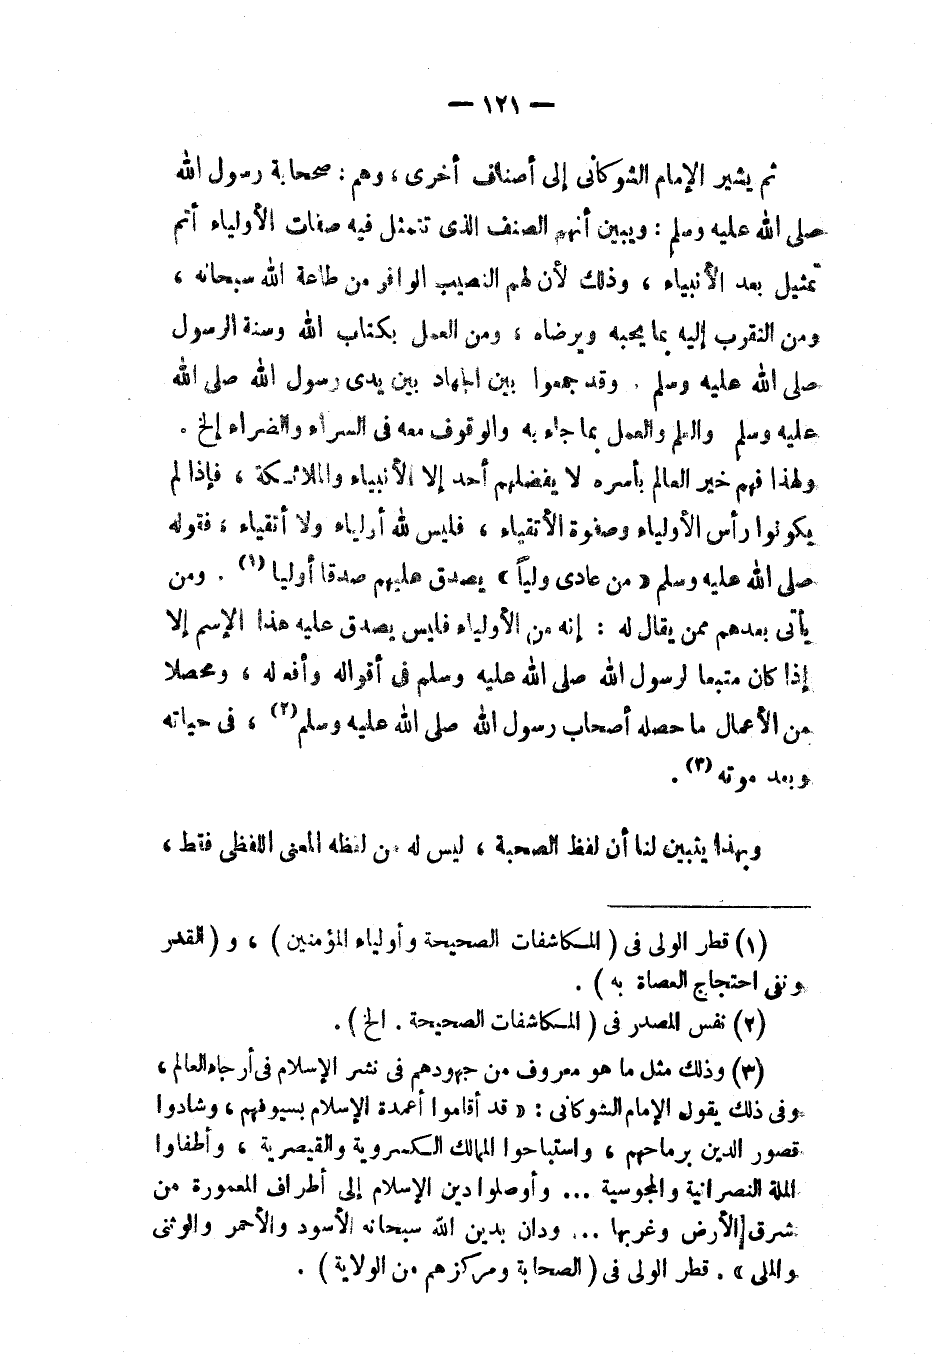 — ١٢١ —
ثم يشير الإمام الشوكانى إلى أصناف أخرى ، وهم : صحابة رسول الله
صلى الله عليه وسلم : ويبين أنهم الصنف الذى تتمثل فيه صفات الأولياء أتم
تمثيل بعد الأنبياء ، وذلك لأن لهم النصيب الوافر من طاعة الله سبحانه ،
ومن التقرب إليه بما يحبه ويرضاه ، ومن العمل بكتاب الله وسنة الرسول
صلى الله عليه وسلم . وقد جمعوا بين الجهاد بين يدى رسول الله صلى الله
عليه وسلم والعلم والعمل بما جاء به والوقوف معه فى السراء والضراء إلخ .
ولهذا فهم خير العالم بأسره لا يفضلهم أحد إلا الأنبياء والملائكة ، فإذا لم
يكونوا رأس الأولياء وصفوة الأتقياء ، فليس لله أولياء ولا أتقياء ، فقوله
صلى الله عليه وسلم « من عادى ولياً » يصدق عليهم صدقا أوليا (١) . ومن
يأتى بعدهم ممن يقال له : إنه من الأولياء فليس يصدق عليه هذا الإسم إلا
إذا كان متبعا لرسول الله صلى الله عليه وسلم فى أقواله وأفعاله ، ومحصلا
من الأعمال ما حصله أصحاب رسول الله صلى الله عليه وسلم (٢) ، فى حياته
وبعد موته (٣) .
وبهذا يتبين لنا أن لفظ الصحبة ، ليس له من لفظه المعنى اللفظى فقط ،
(١) قطر الولى فى ( المكاشفات الصحيحة وأولياء المؤمنين ) ، و ( القدر
ونفى احتجاج العصاة به ) .
(٢) نفس المصدر فى ( المكاشفات الصحيحة . الخ ) .
(٣) وذلك مثل ما هو معروف من جهودهم فى نشر الإسلام فى أرجاء العالم ،
وفى ذلك يقول الإمام الشوكانى : « قد أقاموا أعمدة الإسلام بسيوفهم ، وشادوا
قصور الدين برماحهم ، واستباحوا الممالك الكسروية والقيصرية ، وأطفاوا
الملة النصرانية والمجوسية ... وأوصلوا دين الإسلام إلى أطراف المعمورة من
شرق الأرض وغربها ... ودان بدين الله سبحانه الأسود والأحمر والوثنى
والملى » . قطر الولى فى ( الصحابة ومركزهم من الولاية ) .